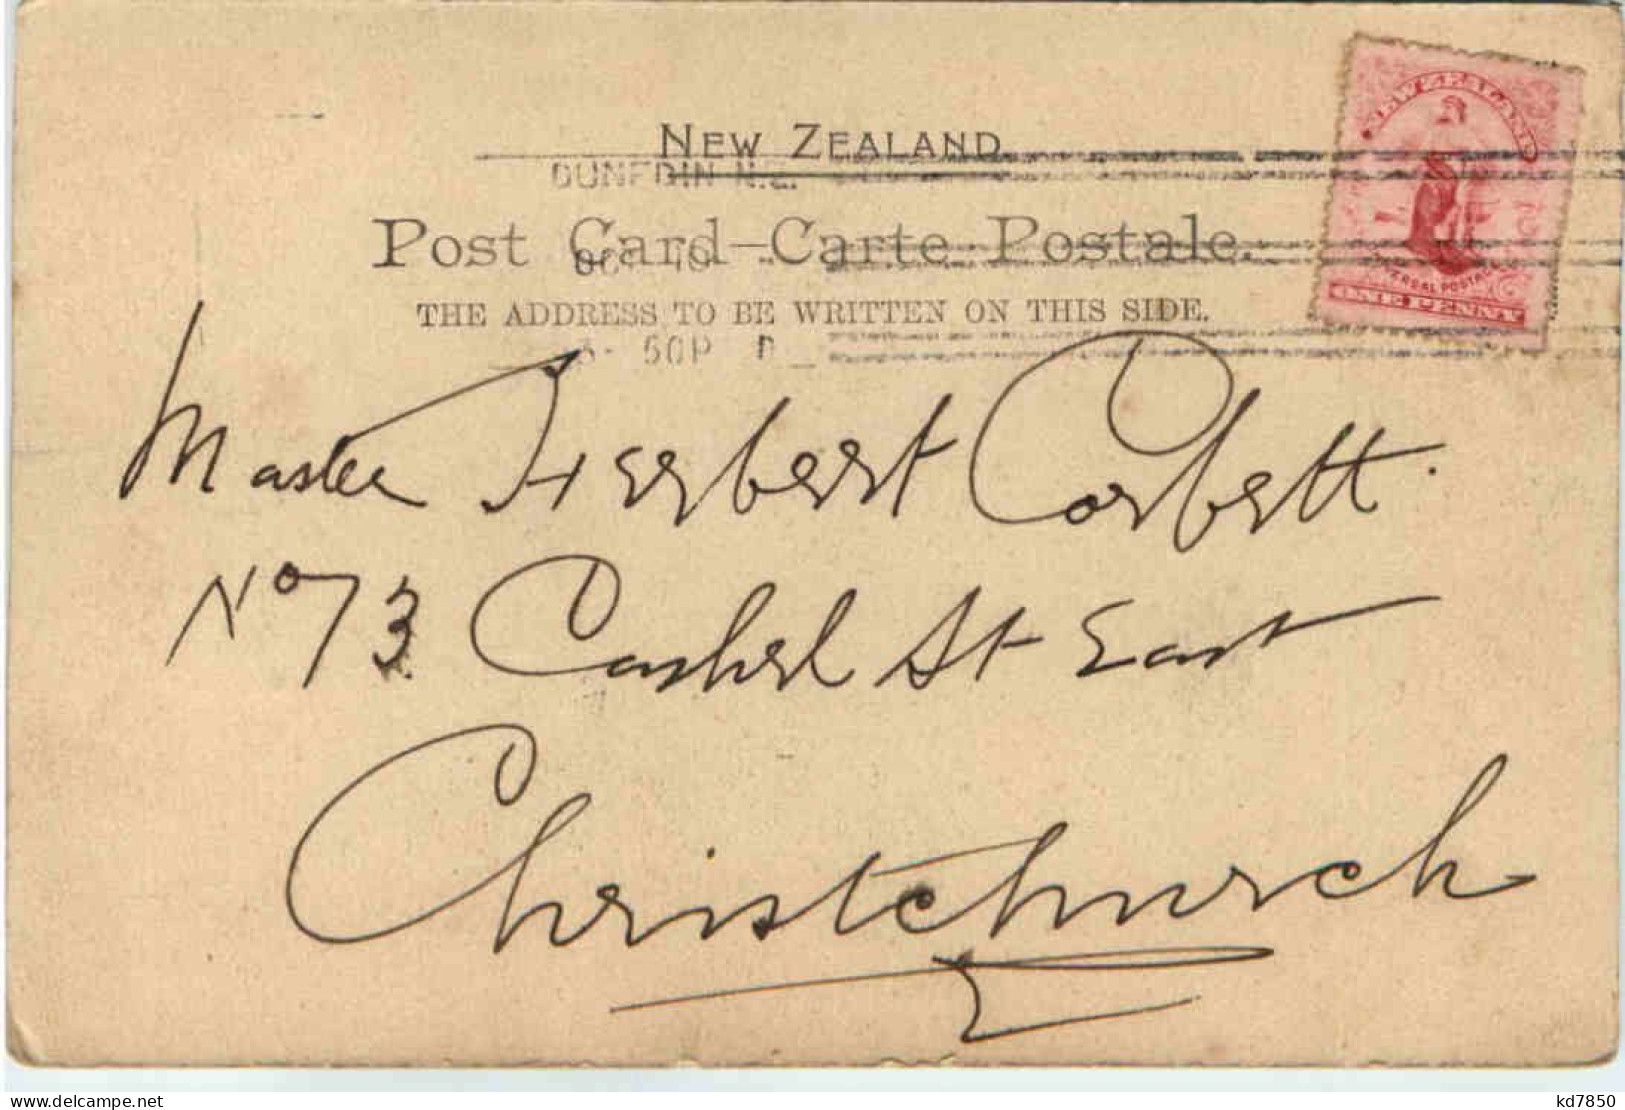 NEW ZEALAND
DUNEDIN N.Z.
Post Card–Carte Postale.
THE ADDRESS TO BE WRITTEN ON THIS SIDE.
NEW ZEALAND
UNIVERSAL POSTAGE
ONE PENNY
Master Herbert Corbett.
No 73 Cashel St East
Christchurch
kd7850